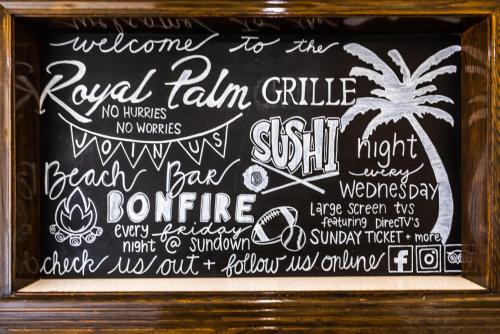 welcome to the
Royal Palm GRILLE
NO HURRIES
NO WORRIES
JOIN US
Beach Bar
BONFIRE
every friday
night @ sundown
SUSHI night
every
WEDNESDAY
Large screen tvs
featuring DirecTV's
SUNDAY TICKET + more
check us out + follow us online